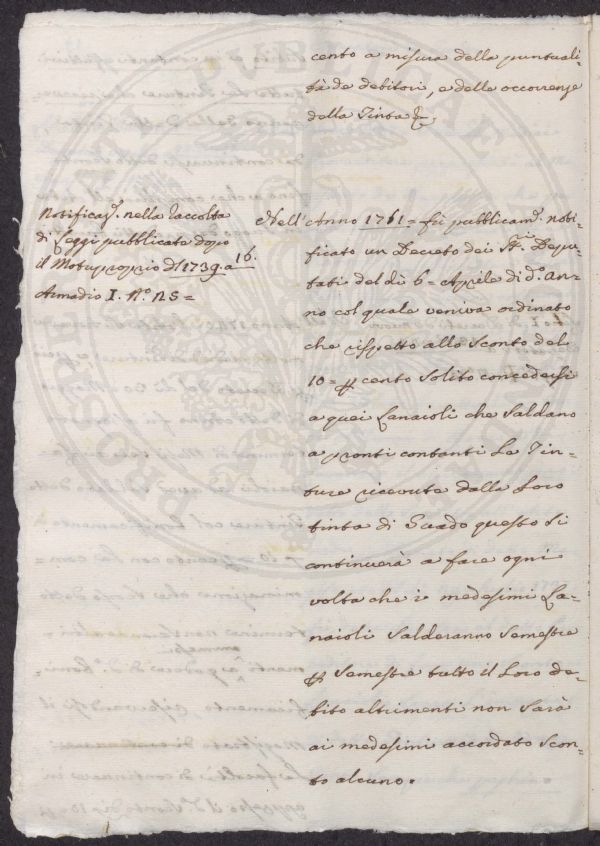 cento a misura della puntuali-
tà de debitori, e delle occorrenze
della Tinta &c.
Notificaz.e nella raccolta
di Leggi pubblicate dopo
il Motuproprio d'l 1739. a 16.
Armadio I. N.o 25=
Nell' Anno 1761= fù pubblicam.e noti-
ficato un Decreto dei SS.i Depu-
tati del dì 6= Aprile di d.o An-
no col quale veniva ordinato
che rispetto allo Sconto del
10= p cento solito concedersi
a quei Lanaioli che Saldano
a pronti contanti le Tin-
ture ricevute dalla Loro
tinta di Guado questo si
continuerà a fare ogni
volta che i medesimi La-
naioli Salderanno Semestre
p Semestre tutto il Loro de-
bito altrimenti non Sarà
ai medesimi accordato Scon-
to alcuno.
PROSPERITATI PUBLICAE